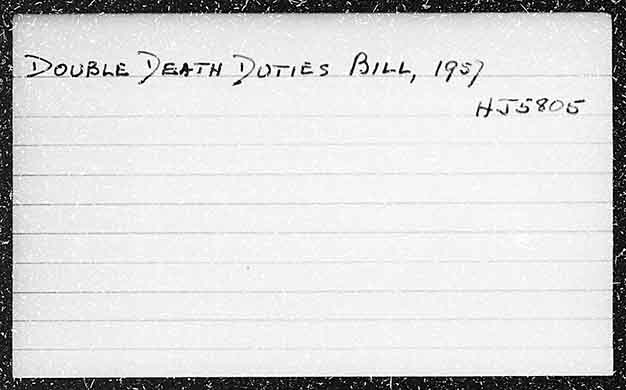 DOUBLE DEATH DUTIES BILL, 1957
HJ5805